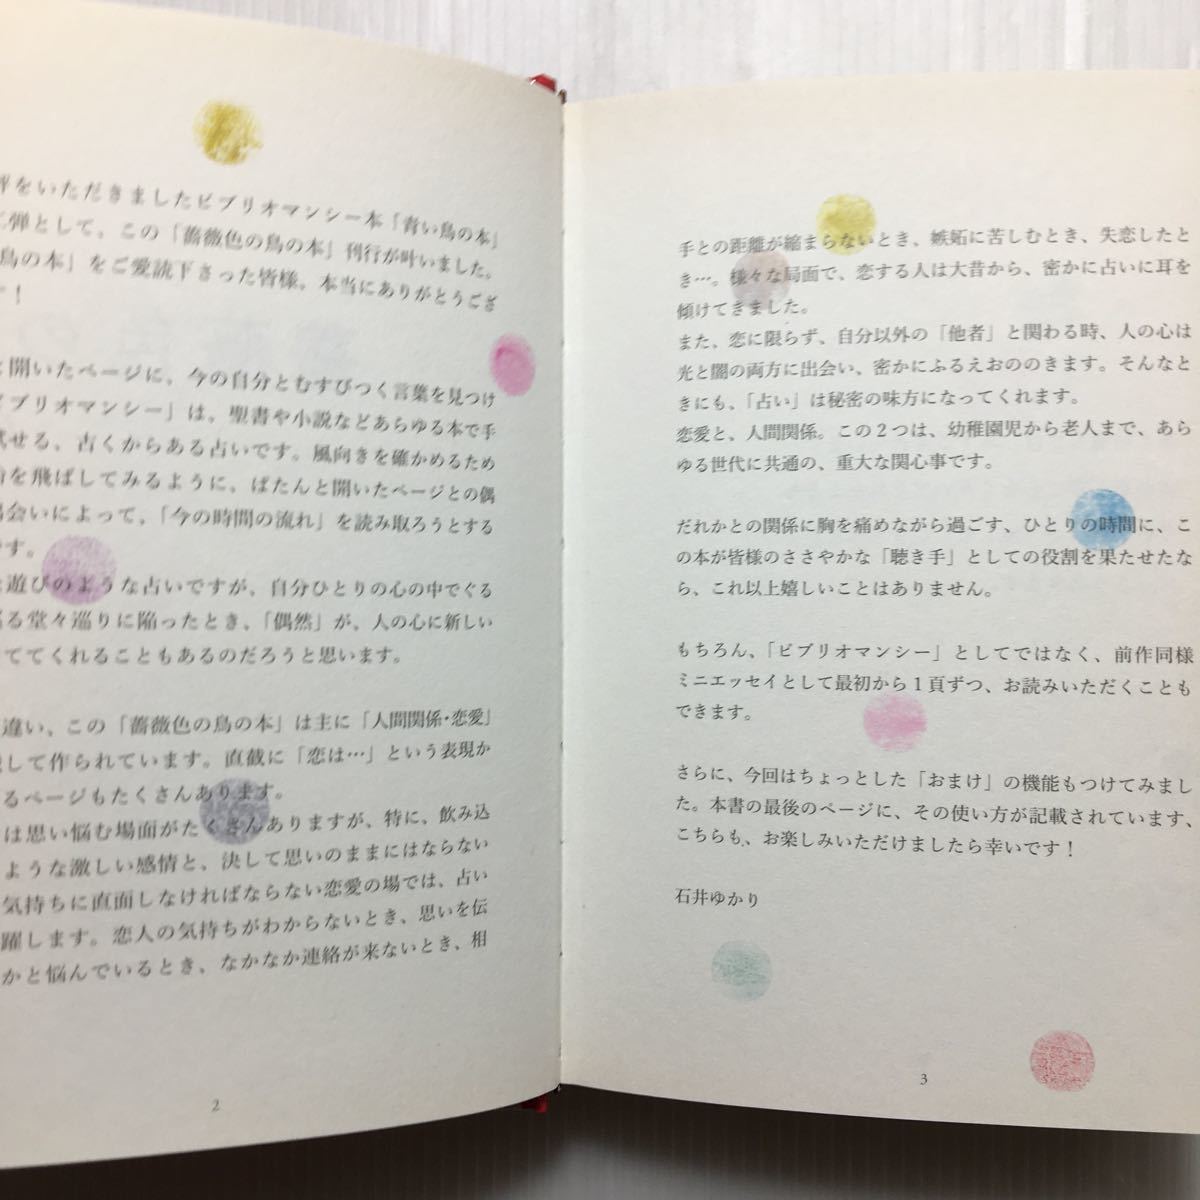 評をいただきましたビブリオマンシー本「青い鳥の本」
弾として、この「薔薇色の鳥の本」刊行が叶いました。
鳥の本」をご愛読下さった皆様、本当にありがとうござ
！
開いたページに、今の自分とむすびつく言葉を見つけ
ビブリオマンシー」は、聖書や小説などあらゆる本で手
試せる、古くからある占いです。風向きを確かめるため
を飛ばしてみるように、ぱたんと開いたページとの偶
会いによって、「今の時間の流れ」を読み取ろうとする
です。
遊びのような占いですが、自分ひとりの心の中でぐる
る堂々巡りに陥ったとき、「偶然」が、人の心に新しい
ててくれることもあるのだろうと思います。
違い、この「薔薇色の鳥の本」は主に「人間関係・恋愛」
して作られています。直截に「恋は…」という表現か
るページもたくさんあります。
は思い悩む場面がたくさんありますが、特に、飲み込
ような激しい感情と、決して思いのままにはならない
気持ちに直面しなければならない恋愛の場では、占い
躍します。恋人の気持ちがわからないとき、思いを伝
かと悩んでいるとき、なかなか連絡が来ないとき、相
2
手との距離が縮まらないとき、嫉妬に苦しむとき、失恋したと
き…。様々な局面で、恋する人は大昔から、密かに占いに耳を
傾けてきました。
また、恋に限らず、自分以外の「他者」と関わる時、人の心は
光と闇の両方に出会い、密かにふるえおののきます。そんなと
きにも、「占い」は秘密の味方になってくれます。
恋愛と、人間関係。この２つは、幼稚園児から老人まで、あら
ゆる世代に共通の、重大な関心事です。
だれかとの関係に胸を痛めながら過ごす、ひとりの時間に、こ
の本が皆様のささやかな「聴き手」としての役割を果たせたな
ら、これ以上嬉しいことはありません。
もちろん、「ビブリオマンシー」としてではなく、前作同様
ミニエッセイとして最初から１頁ずつ、お読みいただくことも
できます。
さらに、今回はちょっとした「おまけ」の機能もつけてみまし
た。本書の最後のページに、その使い方が記載されています、
こちらも、お楽しみいただけましたら幸いです！
石井ゆかり
3